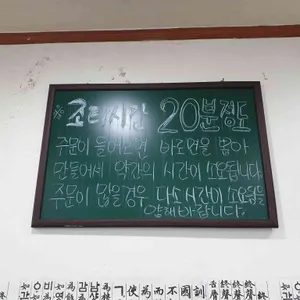 ※ 조리시간 20분정도
주문이 들어오면 바로면을 뽑아
만들어서 약간의 시간이 소요됩니다.
주문이 많을경우 다소 시간이 소요됨을
양해바랍니다.
가使為而不國訓